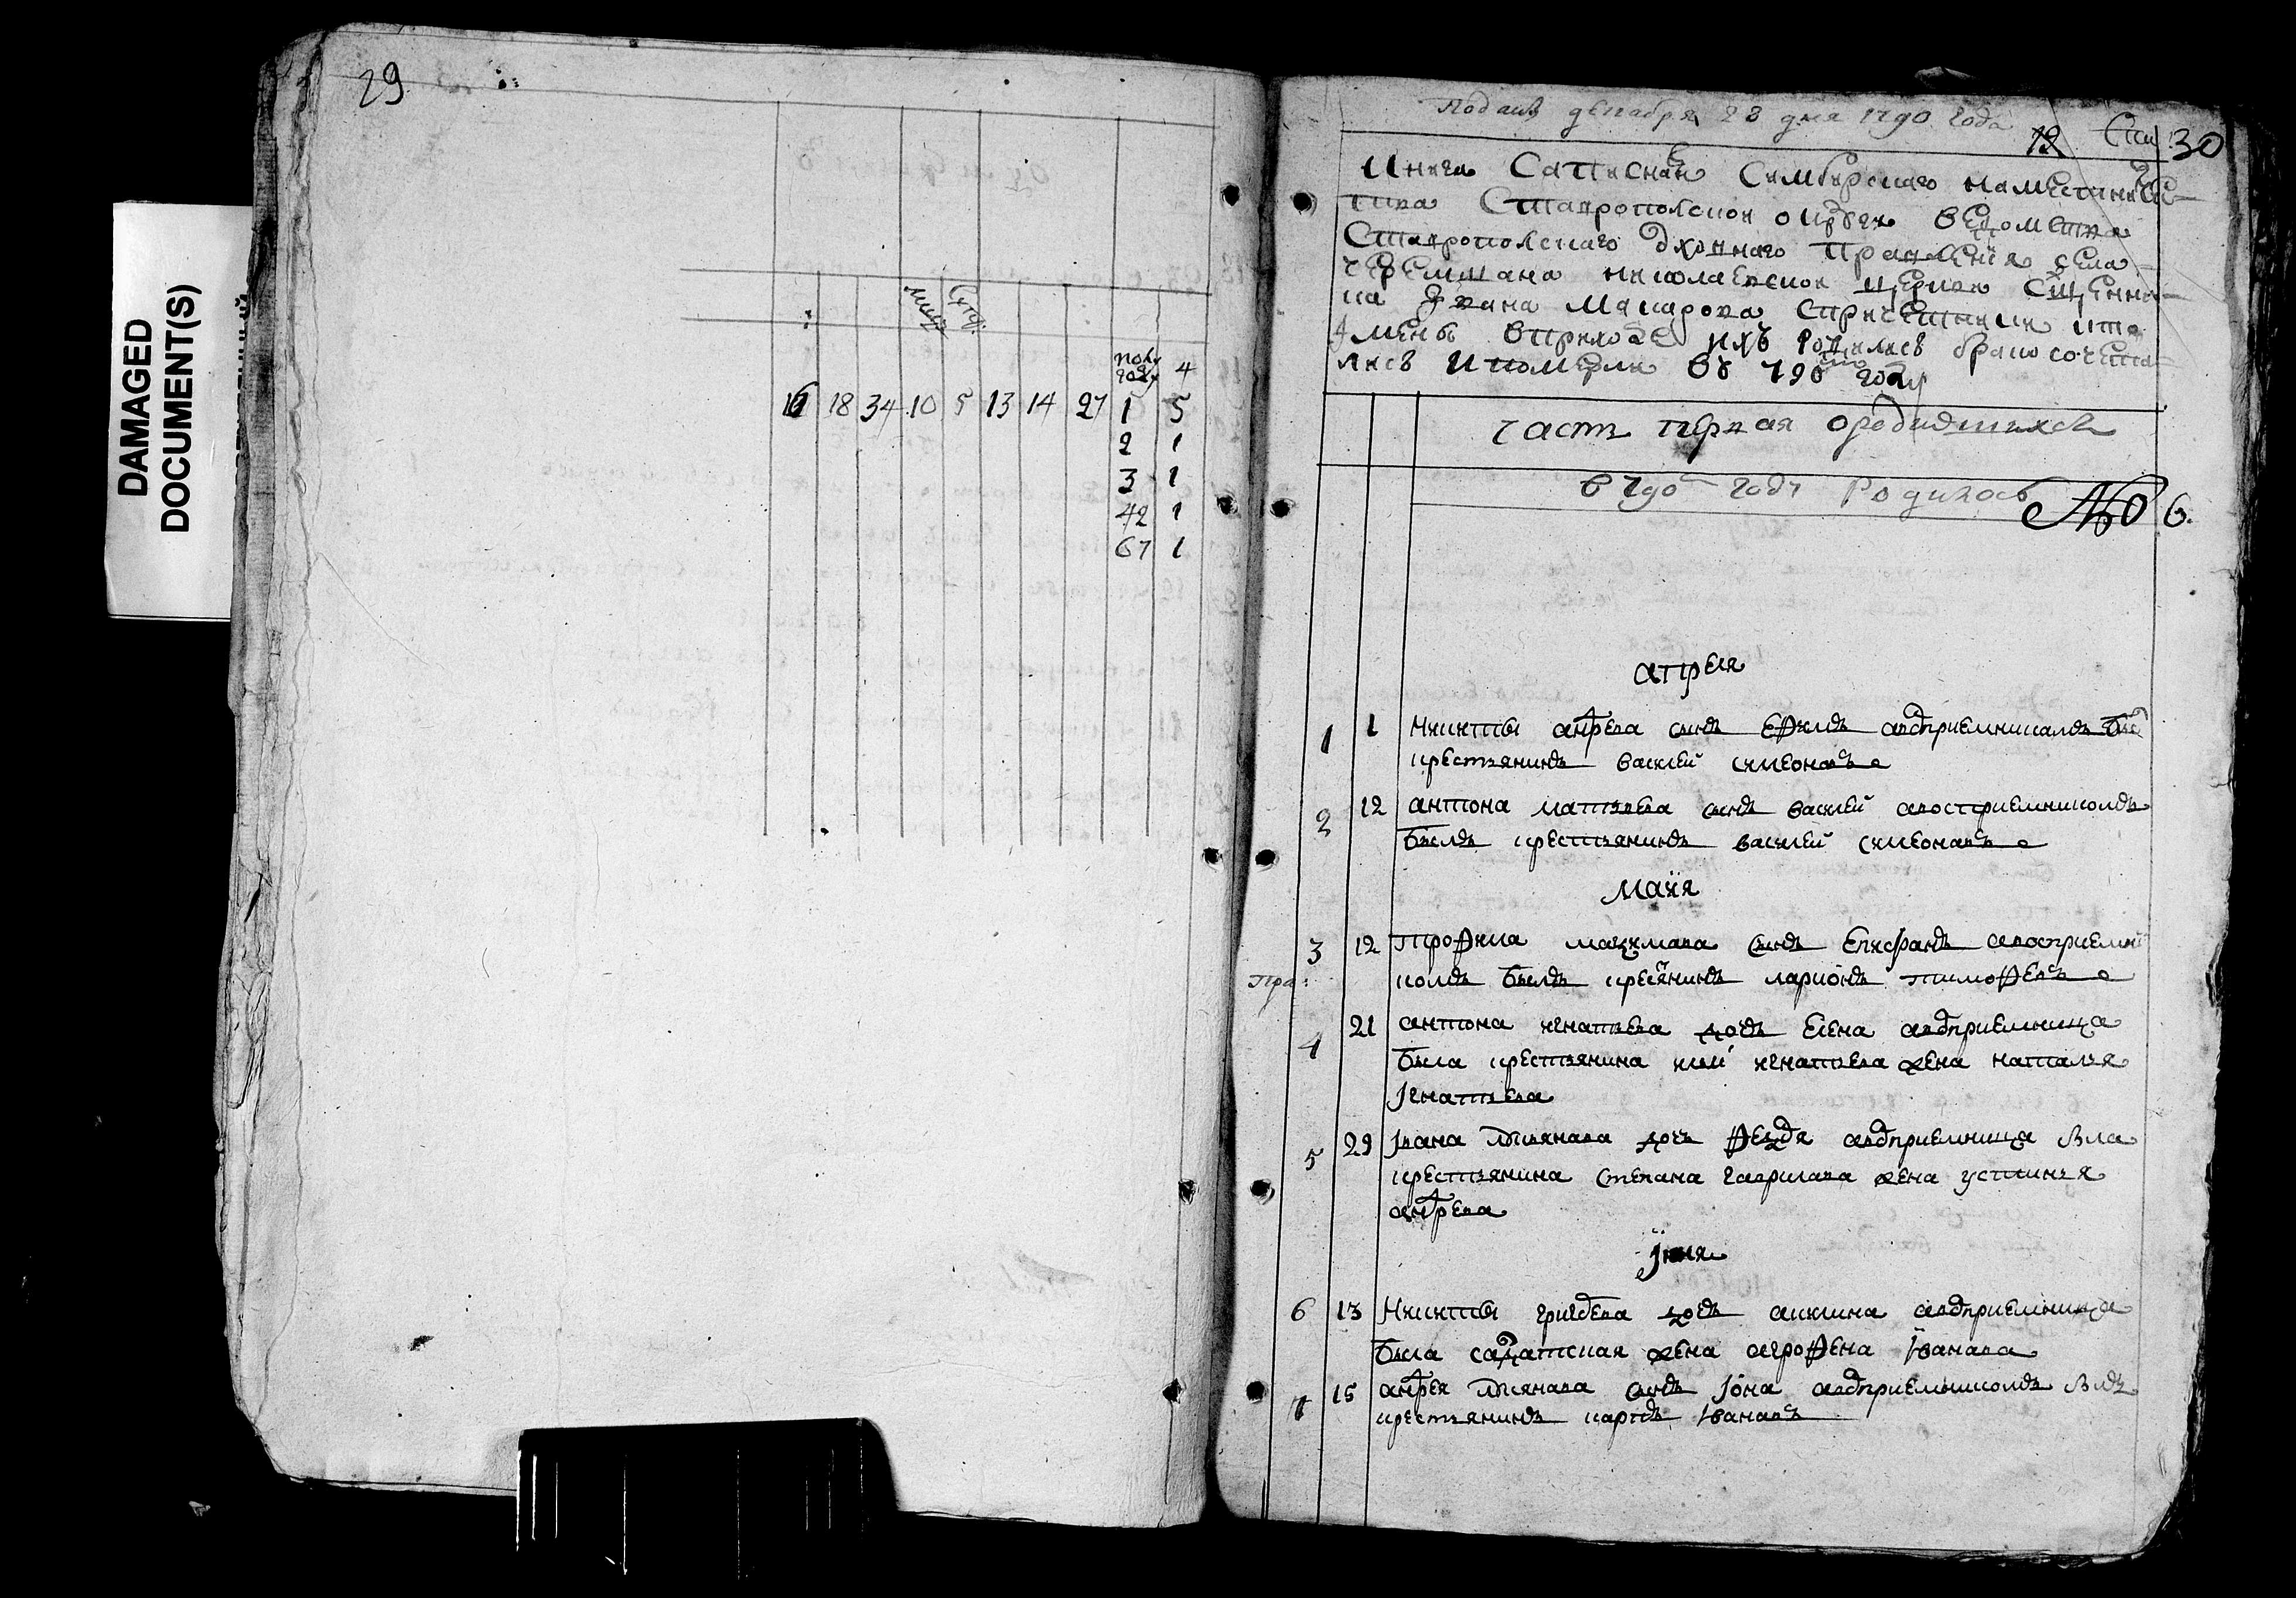 29
DAMAGED
DOCUMENT(S)
полу
году 4
16 18 34 10 5 13 14 27 1 5
2 1
3 1
42 1
67 1
Подана декабря 23 дня 1790 года
12 30
Книга Записная Симбирскаго наместниче-
ства Ставрополской округи ведомства
Ставрополскаго дховнаго правления села
Черемшана николаевской церкви Сщенни-
ка Ивана Макарова спричетники кто
имены вприходе ихъ родилисъ бракосочета-
лисъ и померли въ 790м году
часть первая ородившихся
в 790м годе Родилось
№ 6.
апреля
1 1 Никиты андрева сынъ ефимъ восприемникамъ был
крестьянинъ василей симеонавъ
2 12 антона матвева сынъ василей воспприемникомъ
былъ крестьянинъ василей симеонавъ
маия
3 12 трофима мазимава сынъ епифанъ воспприемни
комъ былъ крестянинъ ларионъ тимофевъ
Пра:
4 21 антона игнатьева дочь елена восприемница
была крестьянина игнатьева жена наталья
Игнатьева
5 29 Ивана жена устинья
крестьянина степана гаврилава
андрева
Июня
6 13 Никиты дочь акилина восприемница
была салдатская жена агрофена Иванава
7 15 андрея сынъ Иона восприемникомъ былъ
крестьянинъ карпъ Иванавъ